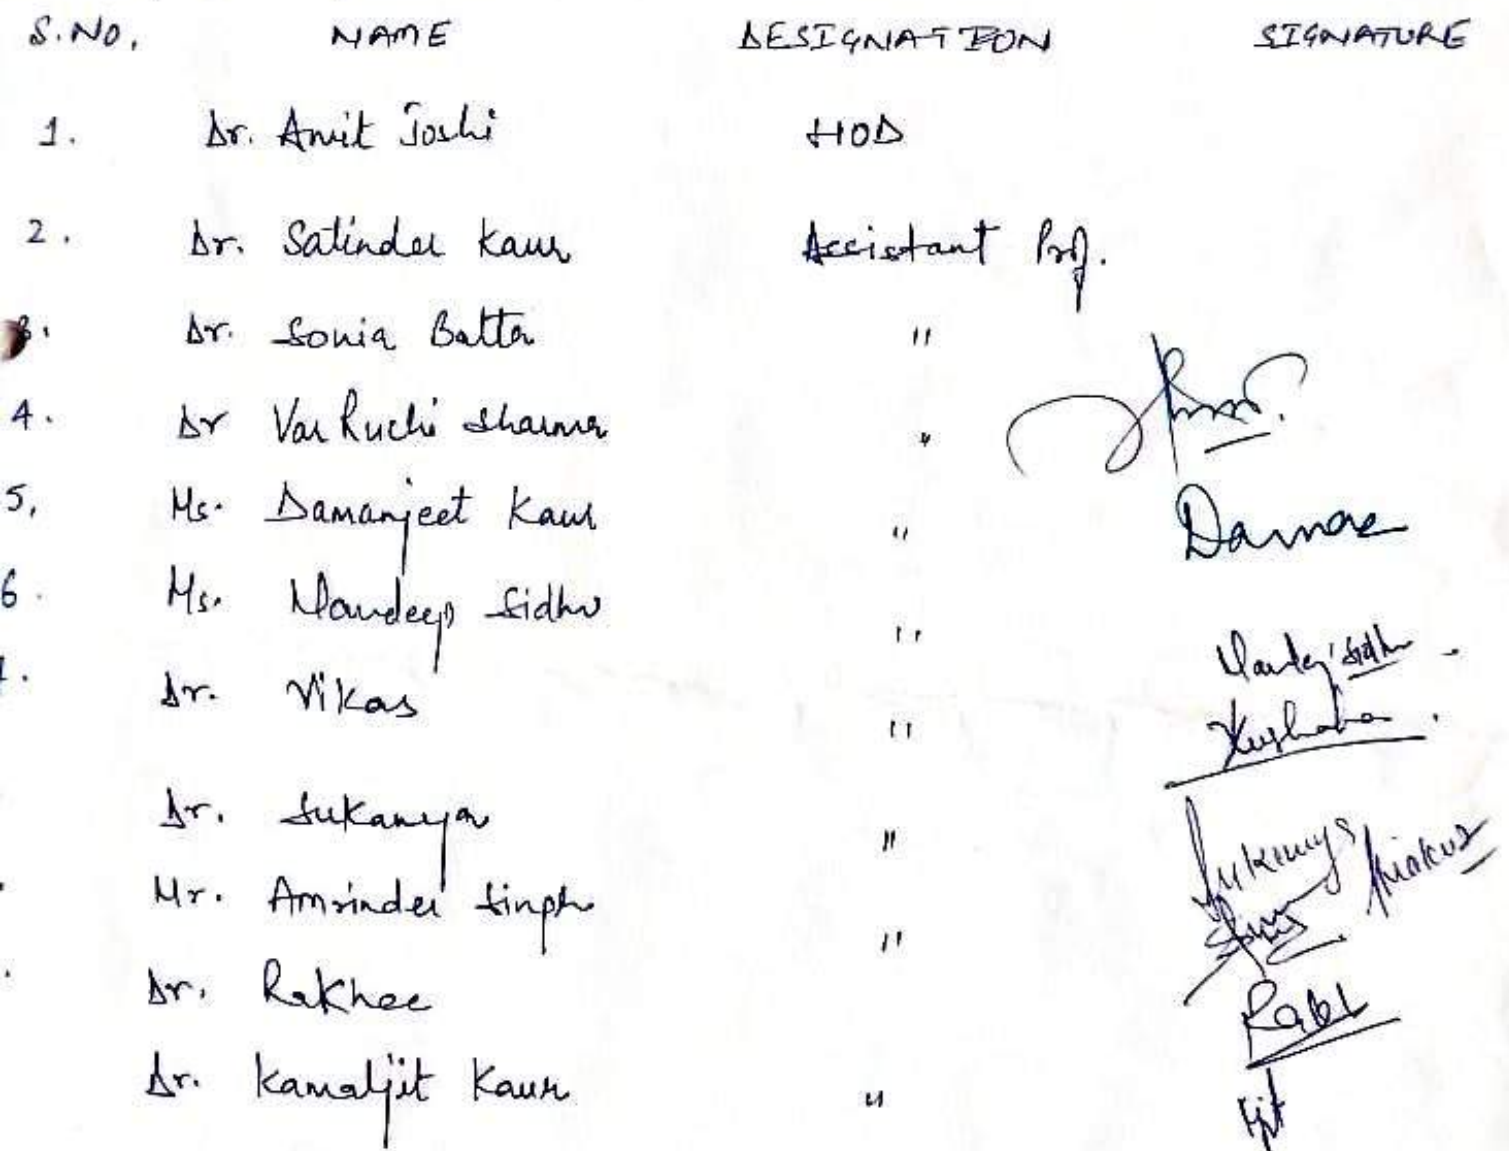 S.NO. NAME DESIGNATION SIGNATURE
1. Dr. Amit Joshi HOD
2. Dr. Satinder Kaur Assistant Prof.
3. Dr. Sonia Batta "
4. Dr Var Ruchi Sharma "
5. Ms. Damanjeet Kaur " Daman
6. Ms. Mandeep Sidhu " Mandeep Sidhu
Dr. Vikas "
Dr. Sukanya " Sukanya
Mr. Amrinder Singh "
Dr. Rakhee
Dr. Kamaljit Kaur "